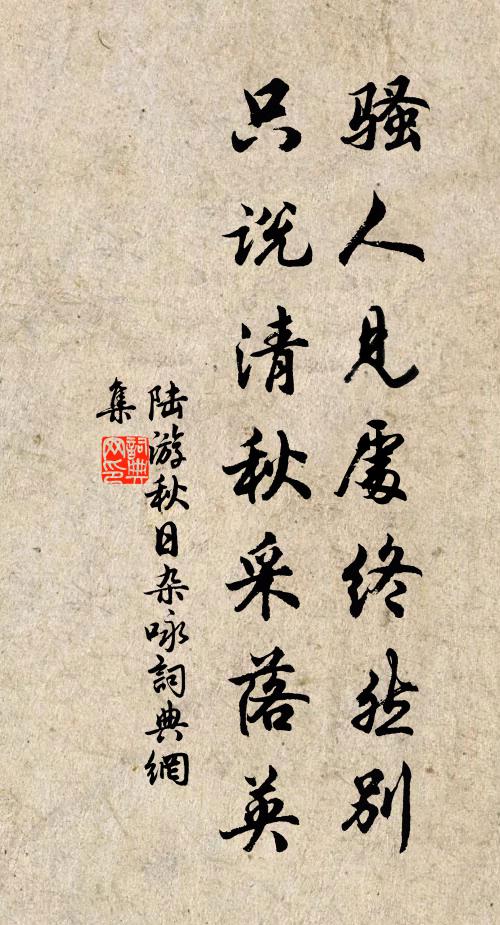 骚人见處终然别
只说清秋采落英
陆游秋日杂咏詞典網
集
詞典网印